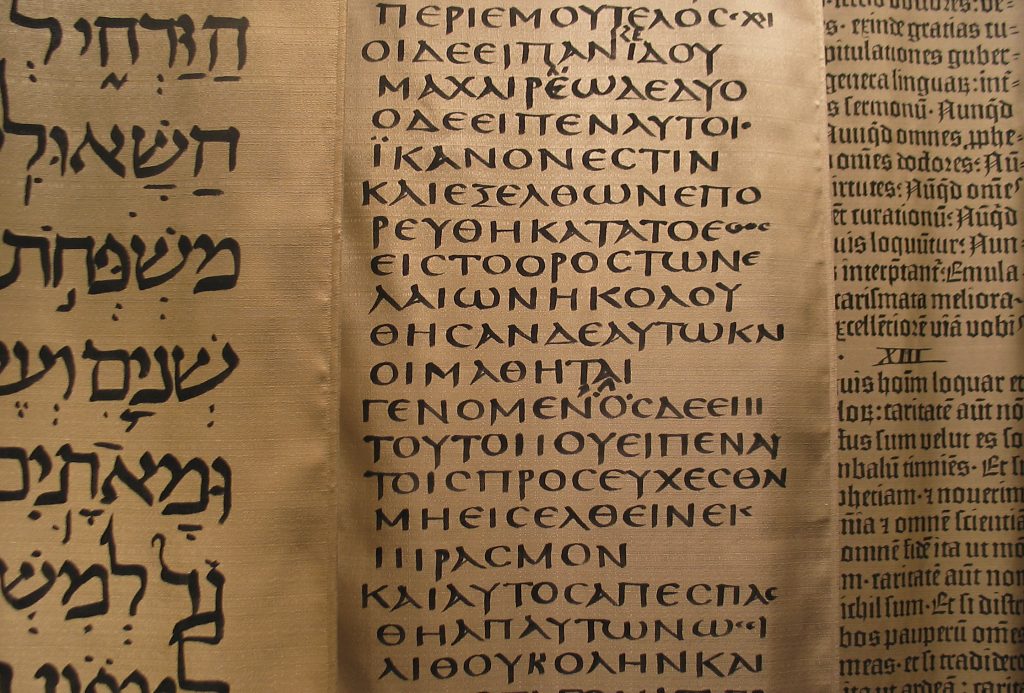 הַזַּרְחִי לְ
הַשָּׁאוּלִ
מִשְׁפְּחֹת
שְׁנַיִם וְעֶשְ
וּמָאתָיִם
גָד לְמִשְׁ
ΠΕΡΙΕΜΟΥΤΕΛΟϹ·ΧΡΙ
ΟΙΔΕΕΙΠΑΝΪΔΟΥ
ΜΑΧΑΙΡΕΩΔΕΔΥΟ
ΟΔΕΕΙΠΕΝΑΥΤΟΙ·
ΪΚΑΝΟΝΕϹΤΙΝ
ΚΑΙΕΞΕΛΘΩΝΕΠΟ
ΡΕΥΘΗΚΑΤΑΤΟΕΘΟϹ
ΕΙϹΤΟΟΡΟϹΤΩΝΕ
ΛΑΙΩΝΗΚΟΛΟΥ
ΘΗϹΑΝΔΕΑΥΤΩΚΑΙ
ΟΙΜΑΘΗΤΑΙ
ΓΕΝΟΜΕΝΟϹΔΕΕΠΙ
ΤΟΥΤΟΠΟΥΕΙΠΕΝΑΥ
ΤΟΙϹΠΡΟϹΕΥΧΕϹΘΑΙ
ΜΗΕΙϹΕΛΘΕΙΝΕΙϹ
ΠΙΡΑϹΜΟΝ
ΚΑΙΑΥΤΟϹΑΠΕϹΠΑϹ
ΘΗΑΠΑΥΤΩΝΩϹΙ
ΛΙΘΟΥΒΟΛΗΝΚΑΙ
exinde gratias cu-
pitulationes guber-
genera linguaꝝ: int̄-
s sermonū. Nunqͥd
Nunqͥd omnes ꝓphe-
omēs doctores: Nū-
irtutes: Nūqͥd omēs
et curationū: Nūqͥd
uis loquūtur: Nun-
interp̄tant̄: Emula-
carismata meliora-
xcellētiorē viā vobis
XIII
uis hoīm loquar et
loꝝ: caritatē aūt nō
tus sum velut es so
mbalū tinniēs. Et si
phetiam ⁊ noverim
nia ⁊ omnē scientiā
omnē fidē ita ut mō
m. caritatē aūt non
ichil sum. Et si distr
bos pauperū omēs
meas. et si tradidero